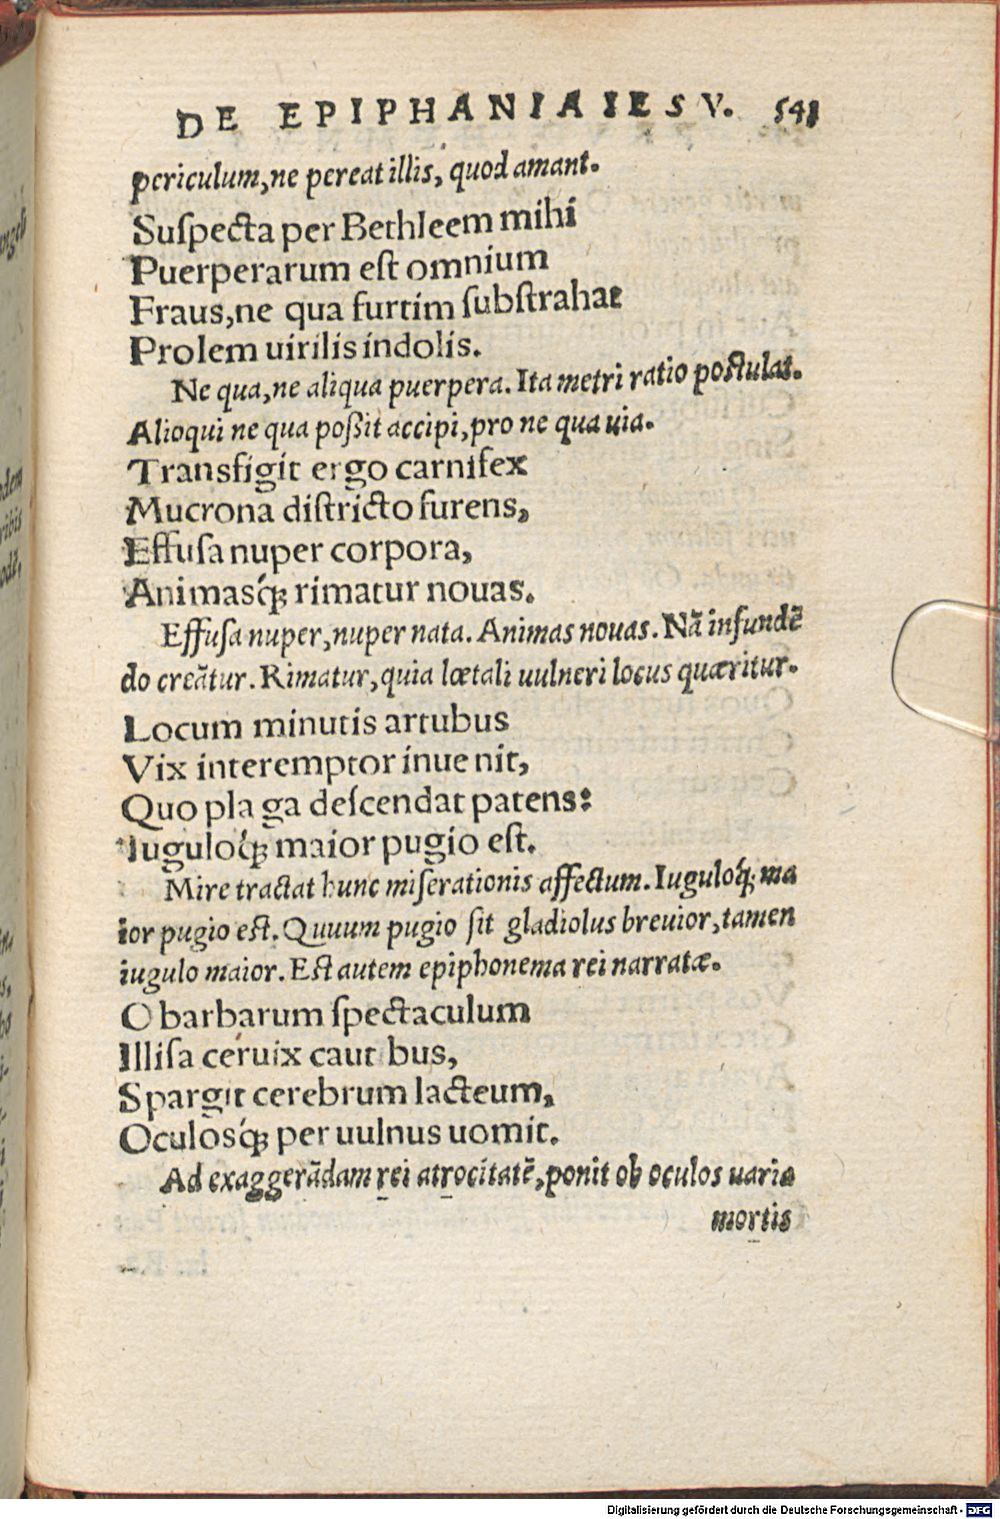 DE EPIPHANIA IESV. 541
periculum, ne pereat illis, quod amant.
Suſpecta per Bethleem mihi
Puerperarum eſt omnium
Fraus, ne qua furtim ſubſtrahat
Prolem uirilis indolis.
Ne qua, ne aliqua puerpera. Ita metri ratio poſtulat.
Alioqui ne qua poßit accipi, pro ne qua uia.
Transfigit ergo carnifex
Mucrona diſtricto furens,
Effuſa nuper corpora,
Animasq́; rimatur nouas.
Effuſa nuper, nuper nata. Animas nouas. Nã infundẽ
do creãtur. Rimatur, quia lœtali uulneri locus quæritur.
Locum minutis artubus
Vix interemptor inue nit,
Quo pla ga deſcendat patens:
Iuguloq́; maior pugio eſt.
Mire tractat hunc miſerationis affectum. Iuguloq́; ma
ior pugio eſt. Quuum pugio ſit gladiolus breuior, tamen
iugulo maior. Eſt autem epiphonema rei narratæ.
O barbarum ſpectaculum
Illiſa ceruix caut bus,
Spargit cerebrum lacteum,
Oculosq́; per uulnus uomit.
Ad exaggerãdam rei atrocitatẽ, ponit ob oculos uaria
mortis
Digitalisierung gefördert durch die Deutsche Forschungsgemeinschaft - DFG